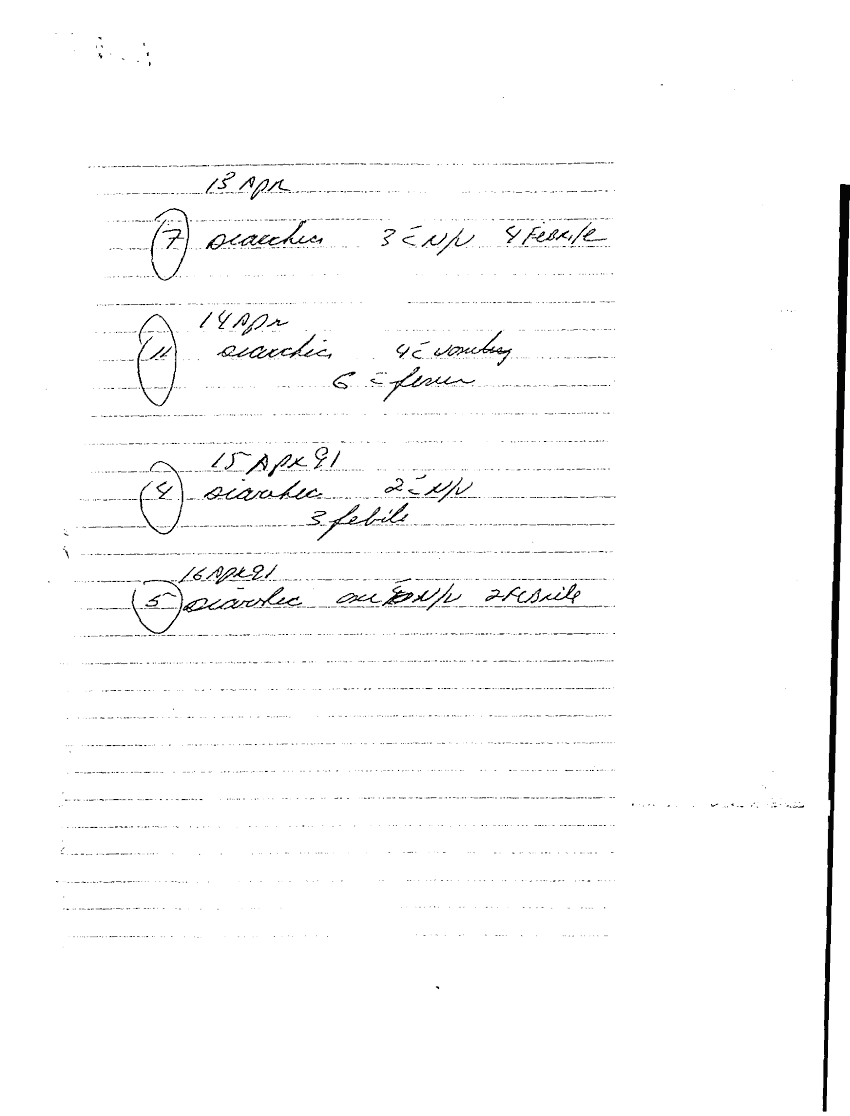 13 Apr
7 Diarrhea 3 c̄ N/V 4 Febrile
14 Apr
11 diarrhea 4 c̄ vomiting
6 c̄ fever
15 Apr 91
4 diarrhea 2 c̄ N/V
3 febile
16 Apr 91
5 diarrhea one c̄ N/V 2 Febrile